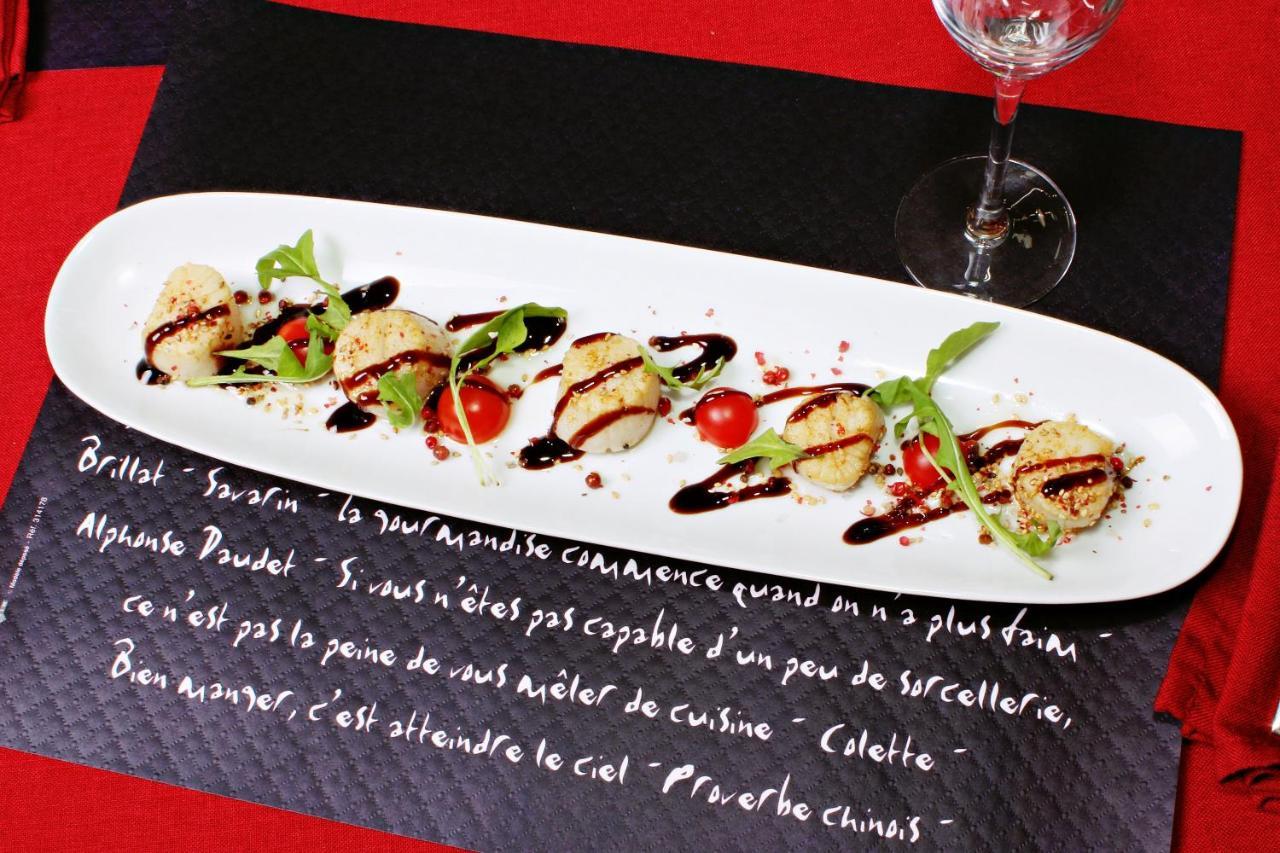 Brillat - Savarin - la gourmandise commence quand on n'a plus faim -
Alphonse Daudet - Si vous n'êtes pas capable d'un peu de sorcellerie,
ce n'est pas la peine de vous mêler de cuisine - Colette -
Bien manger, c'est atteindre le ciel - Proverbe chinois -
Modèle déposé - Réf. 314178